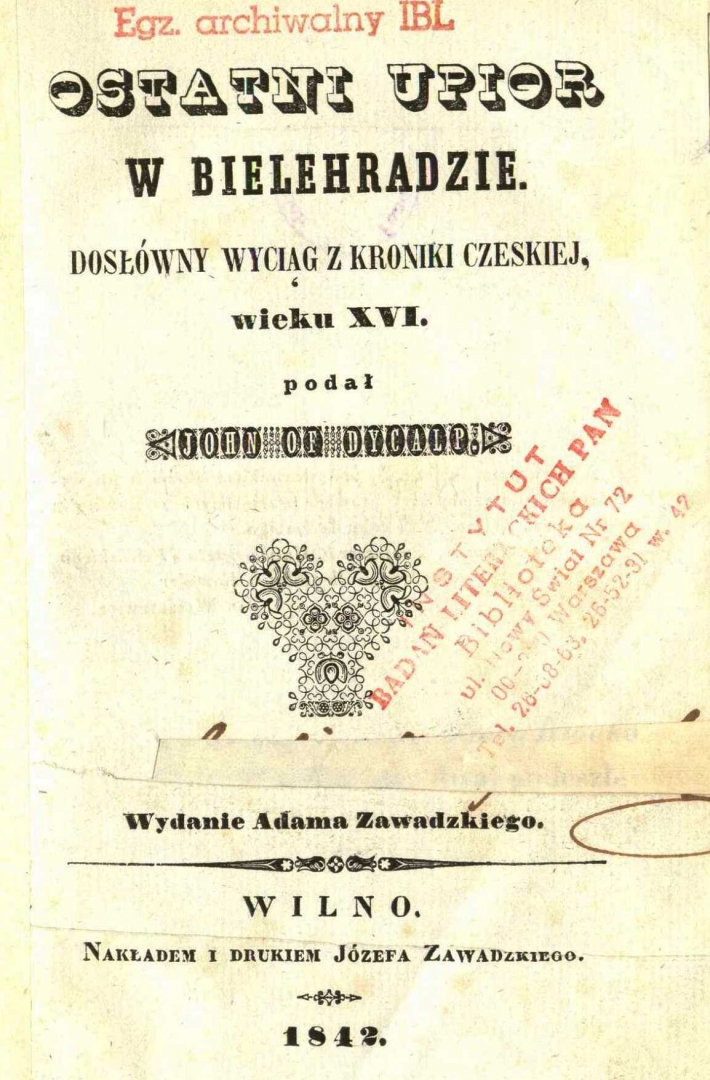 Egz. archiwalny IBL
OSTATNI UPIOR
W BIELEHRADZIE.
DOSŁÓWNY WYCIĄG Z KRONIKI CZESKIEJ,
wieku XVI.
podał
JOHN OF DYCALP.
INSTYTUT
BADAŃ LITERACKICH PAN
Biblioteka
ul. Nowy Świat Nr 72
Warszawa
Tel. 26-68-63, 26-52-31 w. 42
Wydanie Adama Zawadzkiego.
WILNO.
NAKŁADEM I DRUKIEM JÓZEFA ZAWADZKIEGO.
1842.